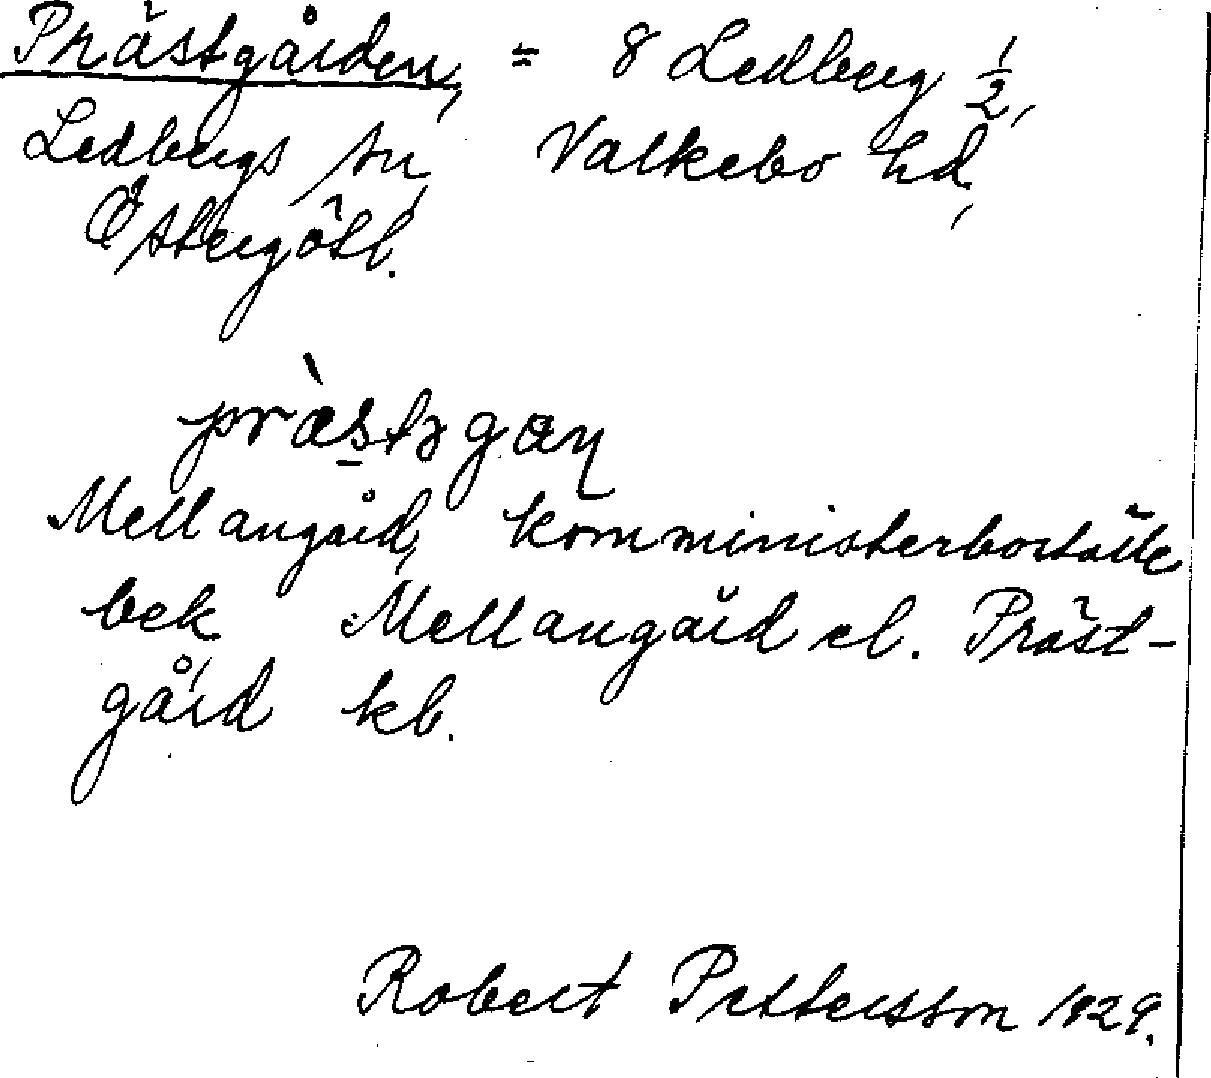 Prästgården, = 8 Ledberg 1/2,
Ledbergs sn, Valkebo hd,
Östergötl.
præ̀stəgan
Mellangård, komministerboställe
bek Mellangård el. Präst-
gård kb.
Robert Pettersson 1929.